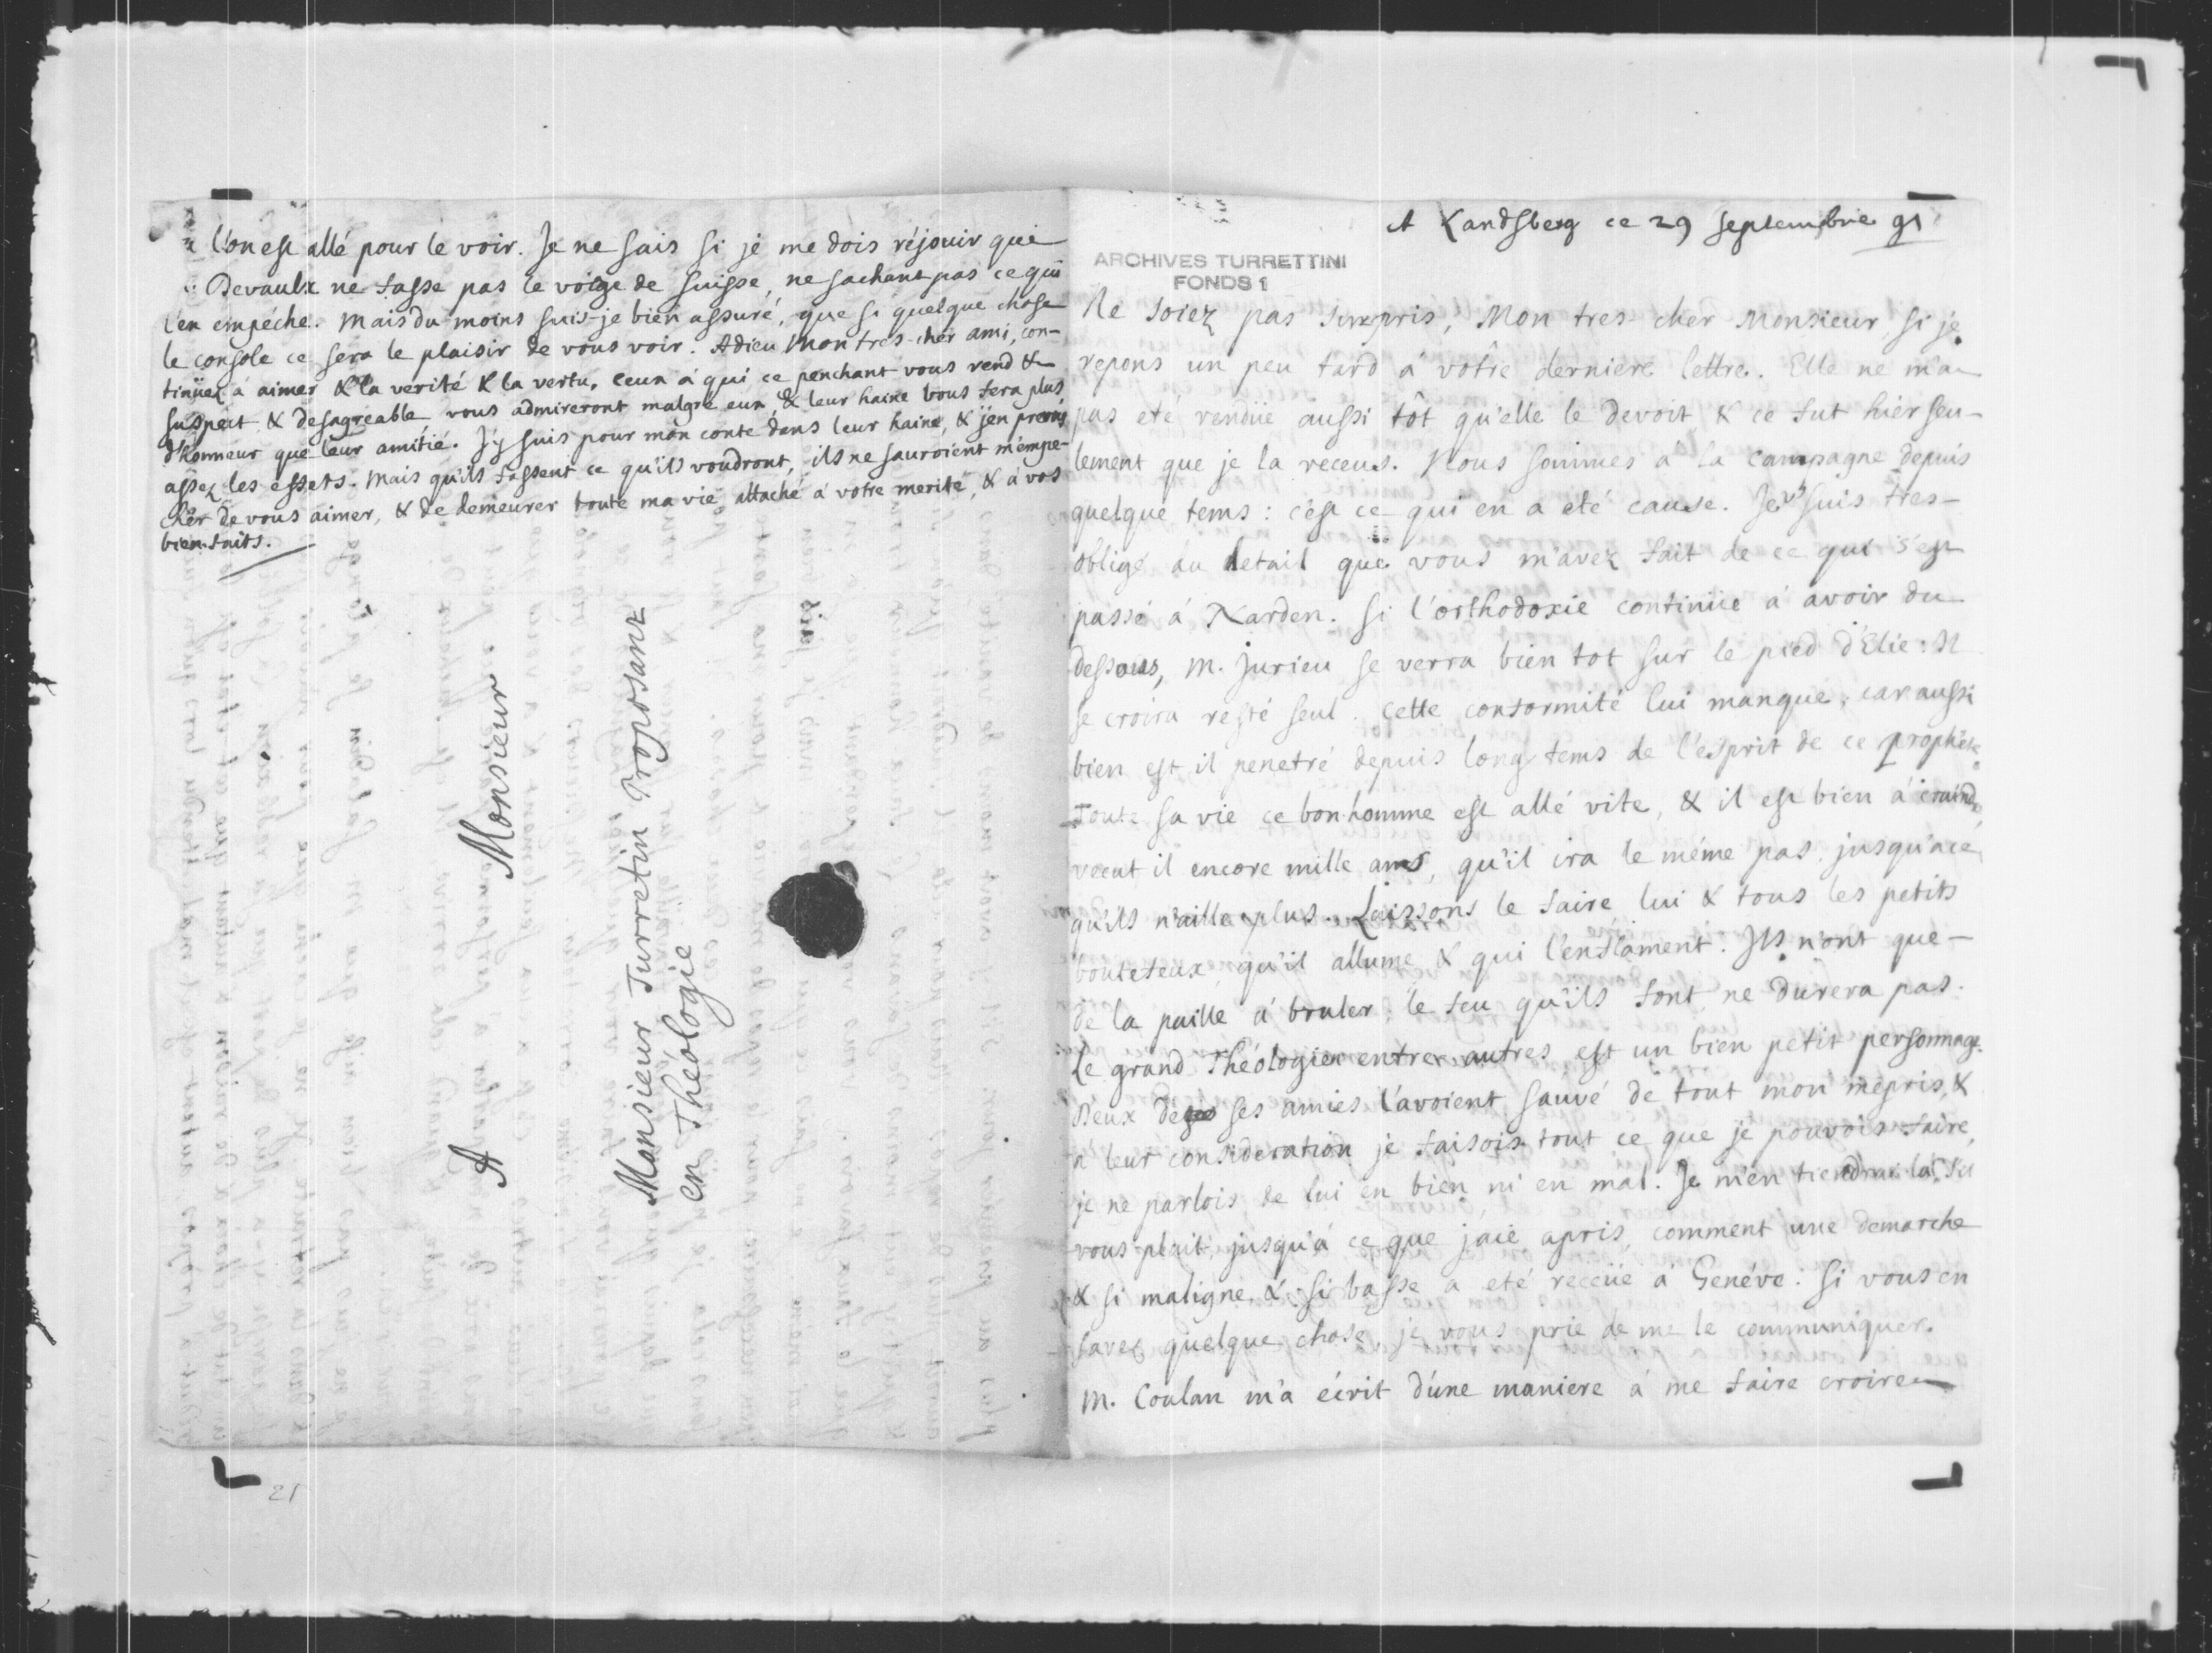 l'on est allé pour le voir. Je ne sais si je me dois réjouir que
Devaulx ne fasse pas le voiage de Suisse, ne sachant pas ce qui
l'en empéche. Mais du moins suis-je bien assuré, que si quelque chose
le console ce sera le plaisir de vous voir. Adieu Mon tres-cher ami, con-
tinüez à aimer & la verité & la vertu. Ceux à qui ce penchant vous rend &
suspect & desagreable, vous admireront malgré eux, & leur haine vous fera plus
d'honneur que leur amitié. J'y suis pour mon conte dans leur haine, & j'en prens
assez les effets. Mais qu'ils fassent ce qu'ils voudront, ils ne sauroient m'empe-
chér de vous aimer, & de demeurer toute ma vie attaché à votre merite, & à vos
bien-faits.
A Monsieur
Monsieur Turretin Proposant
en Théologie
21
A Landsberg ce 29 septembre 91
ARCHIVES TURRETTINI
FONDS 1
Ne soiez pas surpris, Mon tres-cher Monsieur, si je
repons un peu tard à vôtre derniere lettre. Elle ne m'a
pas eté rendüe aussi tôt qu'elle le devoit, & ce fut hier seu-
lement que je la receus. Nous sommes à la campagne depuis
quelque tems: c'est ce qui en a eté cause. Je vs suis tres-
obligé du detail que vous m'avez fait de ce qui s'est
passé à Narden. Si l'orthodoxie continüe à avoir du
dessous, M. Jurieu se verra bien tot sur le pied d'Elie: Il
se croira resté seul. Cette conformité lui manque; car aussi
bien est il penetré depuis long tems de l'esprit de ce prophète.
Toute sa vie ce bonhomme est allé vite, & il est bien à craindre,
vecut il encore mille ans, qu'il ira le méme pas, jusqu'a ce
qu'ils n'aille plus. Laissons le faire lui & tous les petits
boutefeux, qu'il allume & qui l'enflament. Ils n'ont que
de la paille à bruler, le feu qu'ils font ne durera pas.
Le grand Théologien entre autres est un bien petit personnage.
Deux de ses amies l'avoient sauvé de tout mon mépris, &
à leur consideration je faisois tout ce que je pouvois faire,
je ne parlois de lui en bien ni en mal. Je m'en tiendrai là, s'il
vous plait, jusqu'à ce que j'aie apris, comment une demarche
& si maligne, & si basse a eté receüe à Genéve: Si vous en
savez quelque chose, je vous prie de me le communiquer.
M. Coulan m'a écrit d'une maniere à me faire croire